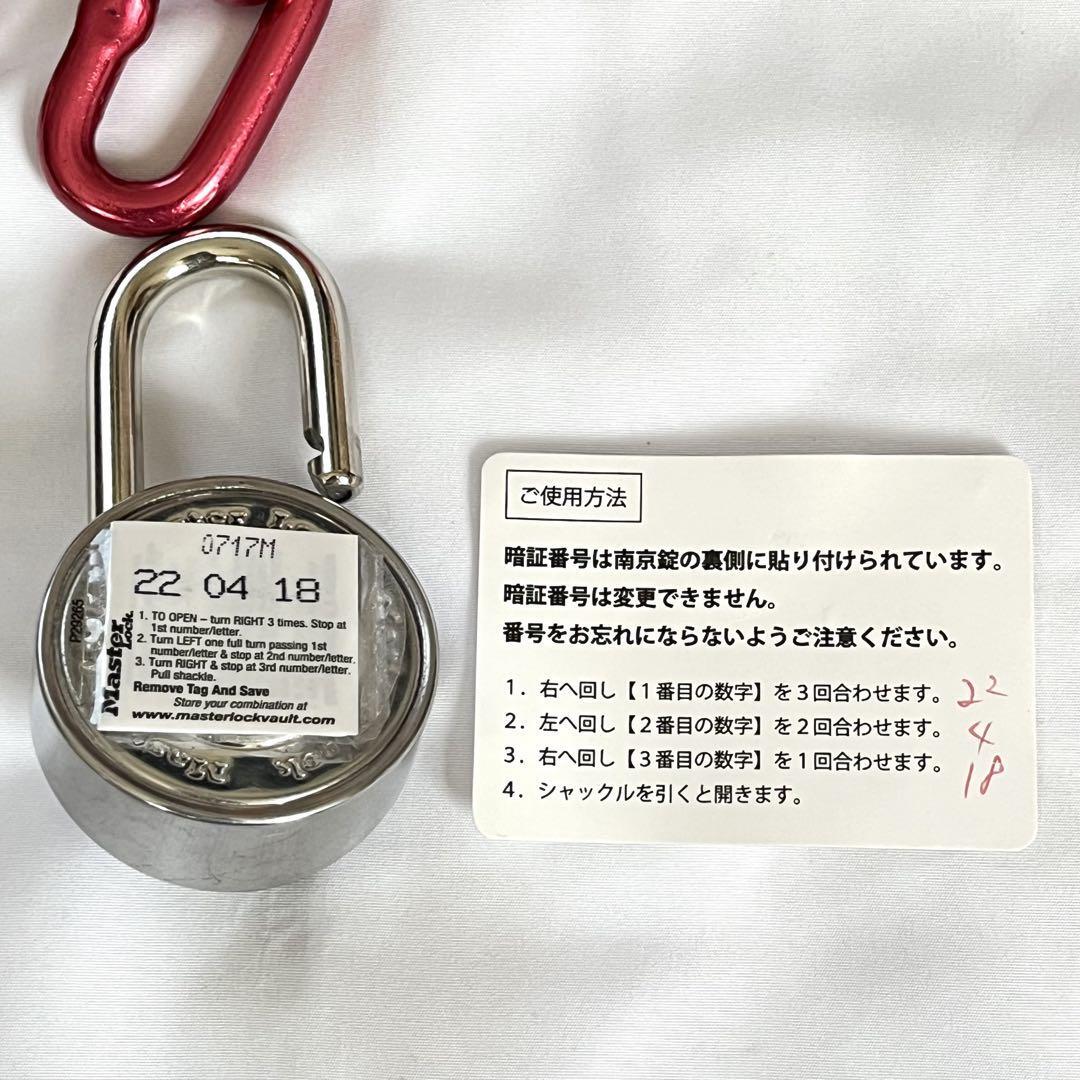 0717M
22 04 18
Master Lock.
1. TO OPEN – turn RIGHT 3 times. Stop at
1st number/letter.
2. Turn LEFT one full turn passing 1st
number/letter & stop at 2nd number/letter.
3. Turn RIGHT & stop at 3rd number/letter.
Pull shackle.
Remove Tag And Save
Store your combination at
www.masterlockvault.com
ご使用方法
暗証番号は南京錠の裏側に貼り付けられています。
暗証番号は変更できません。
番号をお忘れにならないようご注意ください。
1．右へ回し【1番目の数字】を3回合わせます。 22
2．左へ回し【2番目の数字】を2回合わせます。 4
3．右へ回し【3番目の数字】を1回合わせます。 18
4．シャックルを引くと開きます。